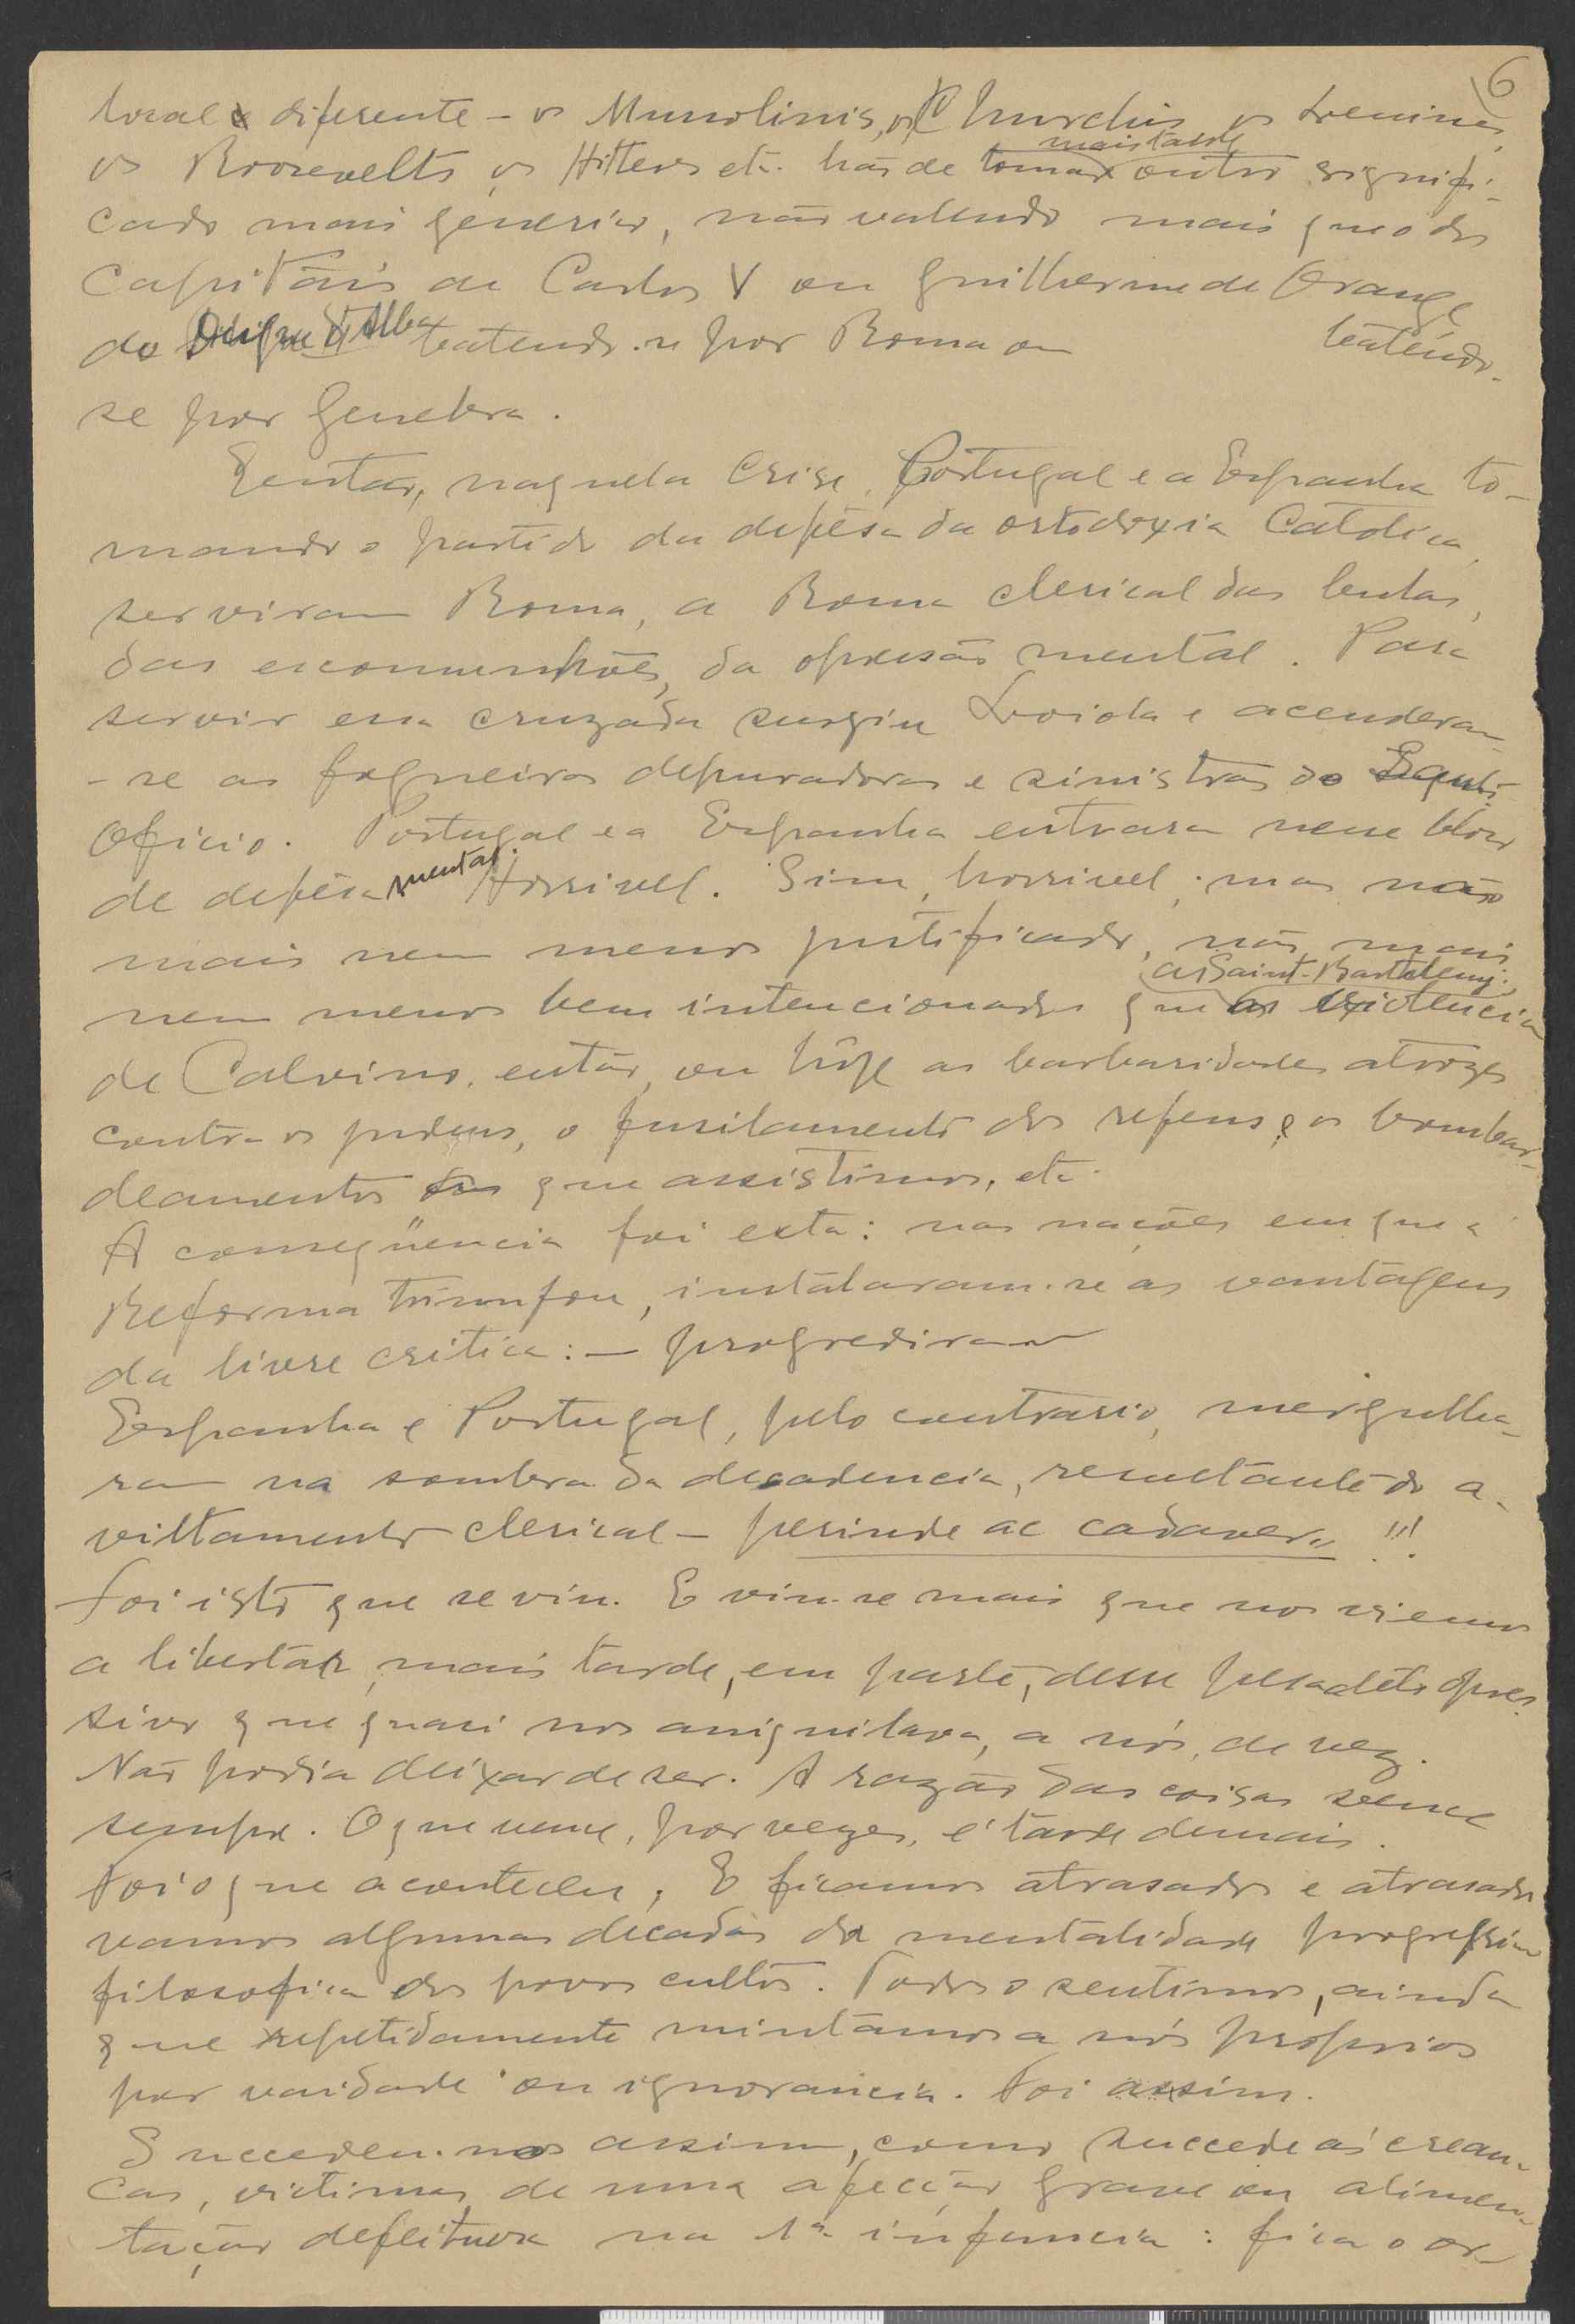 6
local diferente - os Mussolinis, os Churchis os Lenines
os Roosevelts, os Hitlers etc. hão de tomar mais tarde outro signifi-
cado mais génerico, não valendo mais que o dos
Capitãis de Carlos V ou Guilherme de Orange
do Duque d'Alba batendo-se por Roma ou batendo-
se por Genebra.
Então, naquela Crise, Portugal e a Espanha to-
mando o partido da defêsa da ortodoxia Católica,
serviram Roma, a Roma clerical das bulas,
das excomunhões, da opressão mental. Para
servir essa cruzada surgiu Loiola e acenderam-
-se as fogueiras depuradoras e sinistras do Santo
Oficio. Portugal e a Espanha entraram nesse bloco
de defêsa mental. Horrivel. Sim, horrivel; mas não
mais nem menos justificado, não mais
nem menos bem intencionado que as Saint-Barthelemy. as existencia
de Calvino, então, ou hôje as barbaridades atrozes
contra os judeus, o fusilamento dos refens e os bombar-
deamentos a que assistimos, etc.
A conseqüencia foi esta: nas nações em que a
Reforma triunfou, instalaram-se as vantagens
da livre critica: — progrediram
Espanha e Portugal, pelo contrario, mergulha-
ram na sombra da decadencia, resultante do a-
viltamento clerical — perinde ac cadaver" !!!
Foi isto que se viu. E viu-se mais que nos viemos
a libertar, mais tarde, em parte, desse pesadêlo opres-
sivo que quasi nos aniquilava, a nós, de vez.
Não podia deixar de ser. A razão das coisas vence
sempre. O que vence, por vezes, é tarde demais.
Foi o que aconteceu; E ficamos atrasados e atrasados
vamos algumas decadas da mentalidade progressiva
filosofica dos povos cultos. Todos o sentimos, ainda
que repetidamente mintamos a nós proprios
por vaidade ou ignorancia. Foi assim.
Succedeu-nos assim, como succede ás crean-
ças, victimas de uma afecção grave ou alimen-
tação defeituosa na 1ª infancia: fica o or-